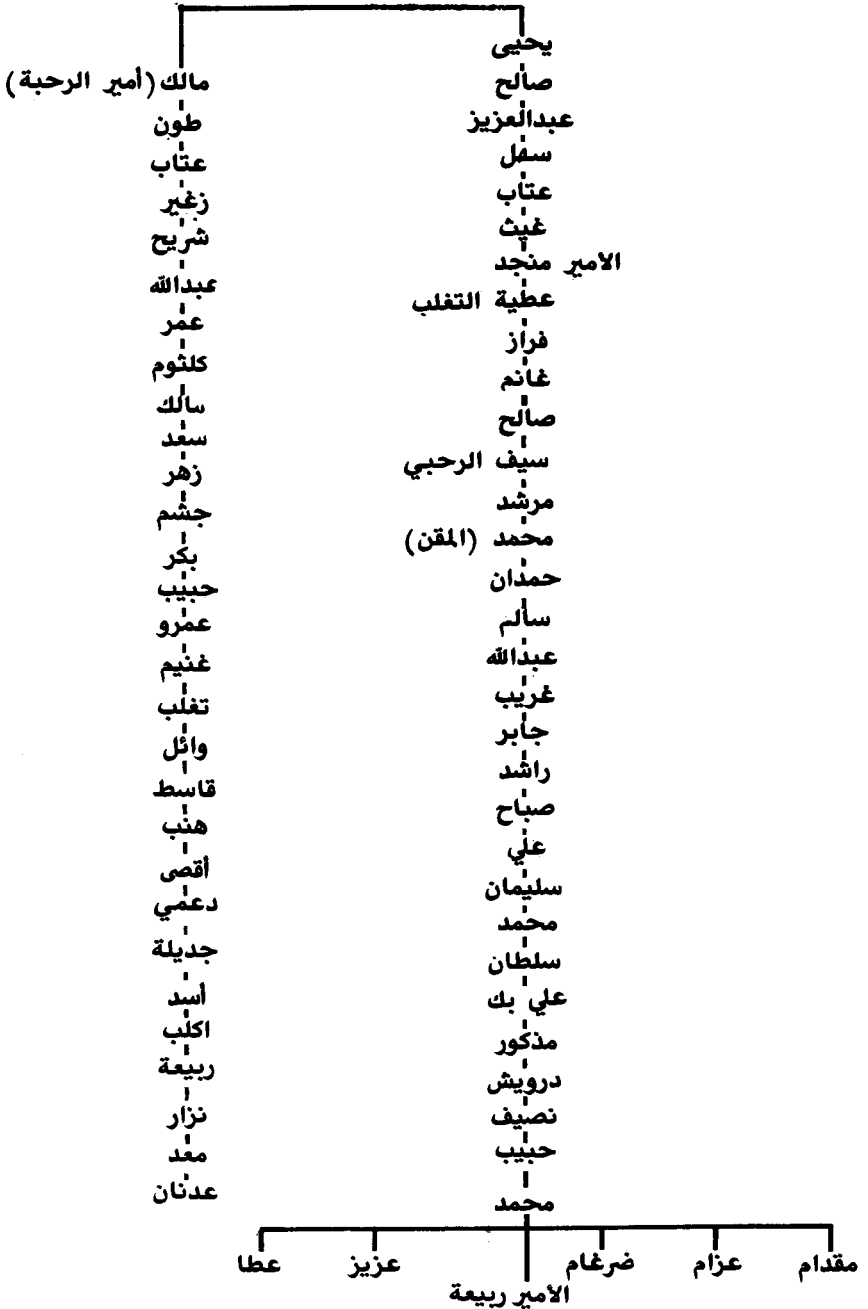 يحيى
صالح
عبدالعزيز
سهل
عتاب
غيث
الأمير منجد
عطية التغلب
فراز
غانم
صالح
سيف الرحبي
مرشد
محمد (المقن)
حمدان
سالم
عبدالله
غريب
جابر
راشد
صباح
علي
سليمان
محمد
سلطان
علي بك
مذكور
درويش
نصيف
حبيب
محمد
مالك (أمير الرحبة)
طون
عتاب
زغير
شريح
عبدالله
عمر
كلثوم
سالك
سعد
زهر
جشم
بكر
حبيب
عمرو
غنيم
تغلب
وائل
قاسط
هنب
أقصى
دعمي
جديلة
أسد
اكلب
ربيعة
نزار
معد
عدنان
مقدام عزام ضرغام عزيز عطا
الأمير ربيعة